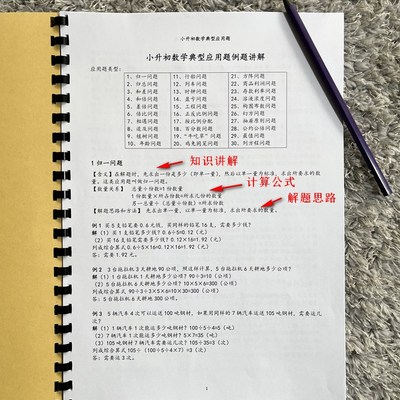 小升初数学典型应用题
小升初数学典型应用题例题讲解
应用题类型:
1. 归一问题 11. 行船问题 21. 方阵问题
2. 归总问题 12. 列车问题 22. 商品利润问题
3. 和差问题 13. 时钟问题 23. 存款利率问题
4. 和倍问题 14. 盈亏问题 24. 溶液浓度问题
5. 差倍问题 15. 工程问题 25. 构图布数问题
6. 倍比问题 16. 正反比例问题 26. 幻方问题
7. 相遇问题 17. 按比例分配 27. 抽屉原则问题
8. 追及问题 18. 百分数问题 28. 公约公倍问题
9. 植树问题 19. “牛吃草”问题 29. 最值问题
10. 年龄问题 20. 鸡兔同笼问题 30. 列方程问题
1 归一问题
知识讲解
【含义】在解题时,先求出一份是多少(即单一量),然后以单一量为标准,求出所要求的数
量。这类应用题叫做归一问题。
计算公式
【数量关系】 总量÷份数=1份数量
1份数量×所占份数=所求几份的数量
另一总量÷(总量÷份数)=所求份数
解题思路
【解题思路和方法】 先求出单一量,以单一量为标准,求出所要求的数量。
例 1 买 5 支铅笔要 0.6 元钱,买同样的铅笔 16 支,需要多少钱?
解(1)买 1 支铅笔多少钱? 0.6÷5=0.12(元)
(2)买 16 支铅笔需要多少钱?0.12×16=1.92(元)
列成综合算式 0.6÷5×16=0.12×16=1.92(元)
答:需要 1.92 元。
例 2 3 台拖拉机 3 天耕地 90 公顷,照这样计算,5 台拖拉机 6 天耕地多少公顷?
解(1)1 台拖拉机 1 天耕地多少公顷? 90÷3÷3=10(公顷)
(2)5 台拖拉机 6 天耕地多少公顷? 10×5×6=300(公顷)
列成综合算式 90÷3÷3×5×6=10×30=300(公顷)
答:5 台拖拉机 6 天耕地 300 公顷。
例 3 5 辆汽车 4 次可以运送 100 吨钢材,如果用同样的 7 辆汽车运送 105 吨钢材,需要运几
次?
解 (1)1 辆汽车 1 次能运多少吨钢材? 100÷5÷4=5(吨)
(2)7 辆汽车 1 次能运多少吨钢材? 5×7=35(吨)
(3)105 吨钢材 7 辆汽车需要运几次? 105÷35=3(次)
列成综合算式 105÷(100÷5÷4×7)=3(次)
答:需要运 3 次。
1